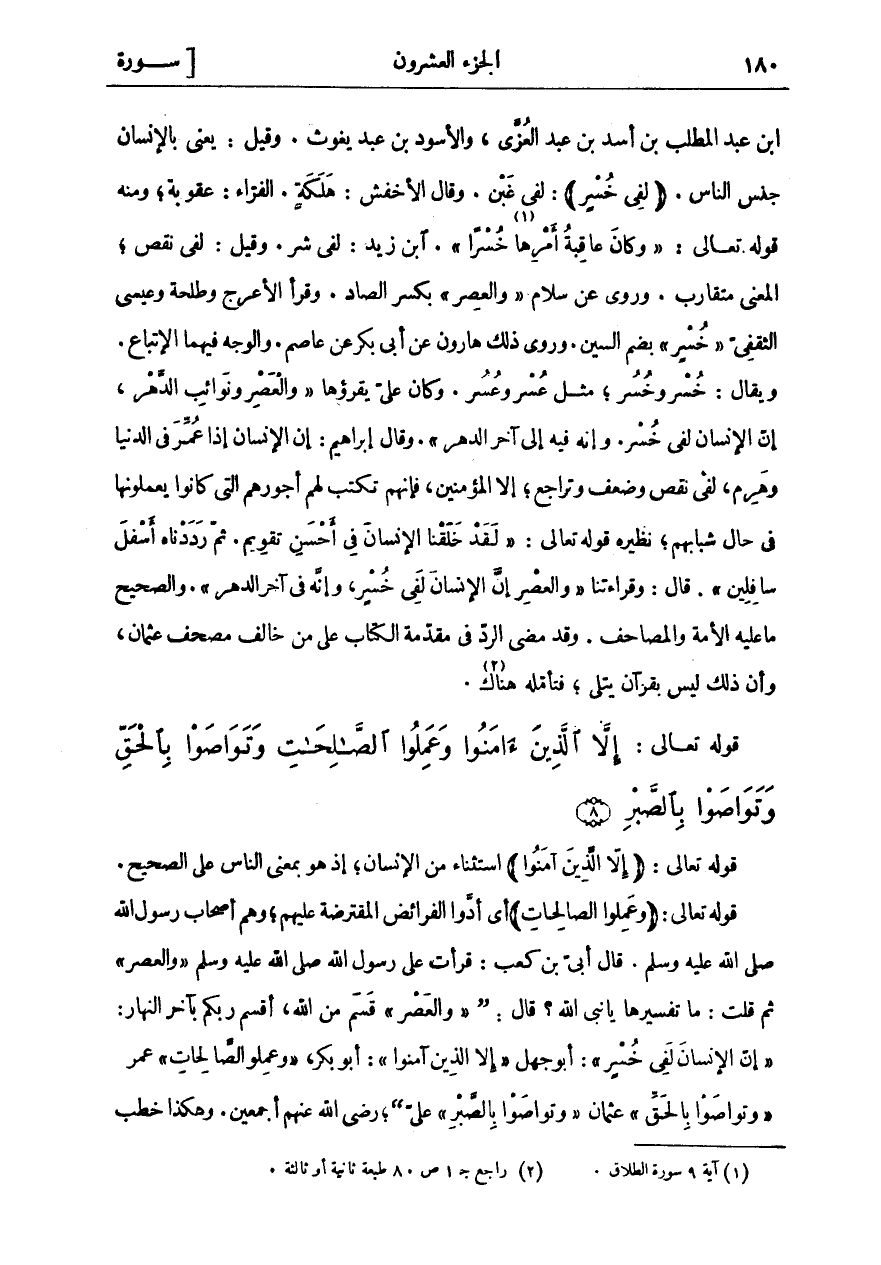 ١٨٠ الجزء العشرون [ســـورة
ابن عبد المطلب بن أسد بن عبد العُزَّى ، والأسود بن عبد يغوث . وقيل : يعنى بالإنسان
جنس الناس . ﴿ لَفِى خُسْرٍ ﴾ : لفى غَبْن . وقال الأخفش : هَلَكَةٍ . الفرّاء : عقوبة ؛ ومنه
قوله تعـالى : « وكانَ عاقبةُ أَمْرِها خُسْرًا (١) » . ٱبن زيد : لفى شر . وقيل : لفى نقص ؛
المعنى متقارب . وروى عن سلام « والعصِر » بكسر الصاد . وقرأ الأعرج وطلحة وعيسى
الثقفىّ « خُسُرٍ » بضم السين . وروى ذلك هارون عن أبى بكر عن عاصم . والوجه فيهما الإتباع .
ويقال : خُسْر وخُسُر ؛ مثـل عُسْر وعُسُر . وكان علىّ يقرؤها « والْعَصْرِ ونَوائِب الدَّهْرِ ،
إنّ الإنسان لفى خُسْر . وإنه فيه إلى آخر الدهر » . وقال إبراهيم : إن الإنسان إذا عُمِّرَ فى الدنيا
وهَرِم ، لفى نقص وضعف وتراجع ؛ إلا المؤمنين ، فإنهم تكتب لهم أجورهم التى كانوا يعملونها
فى حال شبابهم ؛ نظيره قوله تعالى : « لَقَدْ خَلَقْنا الإنسانَ فِى أَحْسَنِ تقويم . ثمّ رَدَدْناه أَسْفَلَ
سافِلِين » . قال : وقراءتنا « والعصْرِ إنَّ الإنسانَ لَفِى خُسْرٍ ، وإنَّه فى آخر الدهر » . والصحيح
ما عليه الأمة والمصاحف . وقد مضى الردّ فى مقدّمة الكتاب على من خالف مصحف عثمان ،
وأن ذلك ليس بقرآن يتلى ؛ فتأمّله هناك (٢) .
قوله تعـالى : إِلَّا ٱلَّذِينَ ءَامَنُوا وَعَمِلُوا ٱلصَّـٰلِحَـٰتِ وَتَوَاصَوْا بِٱلْحَقِّ
وَتَوَاصَوْا بِٱلصَّبْرِ ٨
قوله تعالى : ﴿ إِلّا الَّذِينَ آمَنُوا ﴾ استثناء من الإنسان ؛ إذ هو بمعنى الناس على الصحيح .
قوله تعالى : ﴿ وعَمِلوا الصالِحاتِ ﴾ أى أدَّوا الفرائض المفترضة عليهم ؛ وهم أصحاب رسول الله
صلى الله عليه وسلم . قال أبىّ بن كعب : قرأت على رسول الله صلى الله عليه وسلم « والعصر »
ثم قلت : ما تفسيرها يا نبى الله ؟ قال : ” « والعَصْر » قَسَم من الله ، أقسم ربكم بآخر النهار :
« إنّ الإنسانَ لَفِى خُسْرٍ » : أبو جهل « إلا الذين آمنوا » : أبو بكر ، « وعمِلو الصَّالِحاتِ » عمر
« وتواصَوْا بِالحَقِّ » عثمان « وتواصَوْا بِالصَّبْرِ » علىّ “ ؛ رضى الله عنهم أجمعين . وهكذا خطب
(١) آية ٩ سورة الطلاق . (٢) راجع جـ ١ ص ٨٠ طبعة ثانية أو ثالثة .